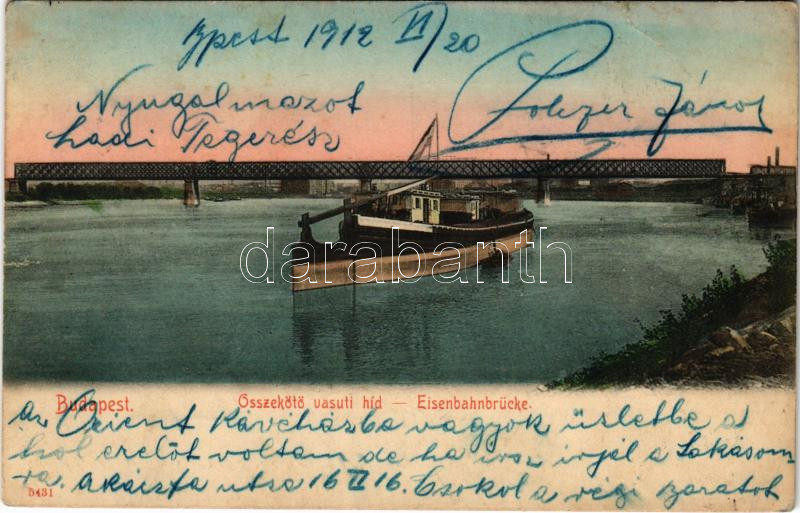 Bpest 1912 VI/20
Nyugalmazot
hadi Tegerész
János
darabanth
Budapest.
Összekötö vasuti híd — Eisenbahnbrücke.
az Orient Kávéházba vagyok üzletbe a
hol előt voltam de ha irsz irjál a Lakásom-
ra. Akáczfa utza 16 II 16. Csokol a régi barátot
5431